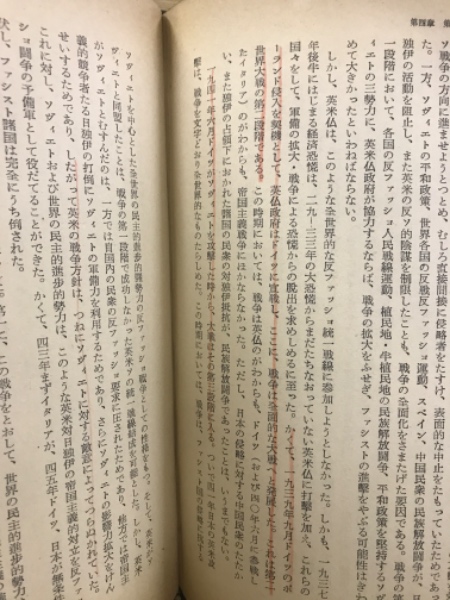 第四章
ソ戦争の方向に進ませようとつとめ、むしろ直接間接に侵略者をたすけ、表面的な中止をたもっていたためであっ
た。一方、ソヴィエトの平和政策、世界各国の反戦反ファッショ運動、スペイン、中国民衆の民族解放闘争が、日
独伊の活動を阻止し、また英米の反ソ的陰謀を制限したことも、戦争の全面化をさまたげた原因である。戦争の第
一段階において、各国の反ファッショ人民戦線運動、植民地・半植民地の民族解放闘争、平和政策を堅持するソヴ
ィエトの三勢力に、英米仏政府が協力するならば、戦争の拡大をふせぎ、ファシストの進撃をやぶる可能性はきわ
めて大きかったといわねばならない。
しかし、英米仏は、このような全世界的な反ファッショ統一戦線に参加しようとしなかった。しかも、一九三七
年後半にはじまる経済恐慌は、二九―三三年の大恐慌からまだたちなおっていない英米仏に打撃を加え、これらの
国々をして、軍備の拡大、戦争による恐慌からの脱出を求めしめるに至った。かくて、一九三九年九月ドイツのポ
ーランド侵入を契機として、英仏政府はドイツに宣戦し、ここに、戦争は全面的な大戦へと発展した。これは第二
世界大戦の第二段階である。この時期においては、戦争は英仏のがわからも、ドイツ(および四〇年六月に参戦し
たイタリア)のがわからも、帝国主義戦争にほかならなかった。ただし、日本の侵略に対する中国民衆のたたか
い、また独伊の占領下におかれた諸国の民衆の対独伊抵抗が、民族解放戦争であったことは、いうまでもない。
一九四一年六月ドイツがソヴィエトを攻撃した時から、大戦はその第三段階に入る。ついで四一年十二月の英米攻
撃は、戦争を文字どおり全世界的なものたらしめた。この時期においては、戦争は、ファシスト国の侵略に対する
ソヴィエトを中心とした全世界の民主的進歩的諸勢力の反ファッショ戦争としての性格をもつ。そして、英米がソ
ヴィエトと同盟したことは、戦争の第一段階で成功しなかった英米ソの統一戦線結成を可能とした。しかし、英米
がソヴィエトとむすんだのは、一方では自国内の民衆の反ファッショ要求に圧されたためであり、他方では帝国主
義的競争者たる日独伊の打倒にソヴィエトの軍備力を利用するためであり、さらにソヴィエトの影響力拡大をけん
せいするためであり、したがって英米の戦争方針は、つねにソヴィエトに対する敵意によってつらぬかれていた。
これに対し、ソヴィエトおよび世界の民主的進歩的勢力は、このような英米対日独伊の帝国主義的対立を反ファッ
ショ闘争の予備軍として役だてることができた。かくて、四三年まずイタリアが、四五年ドイツ、日本が無条
伏し、ファシスト諸国は完全にうち倒された。
この戦争をとおして、世界の民主的進歩的勢力